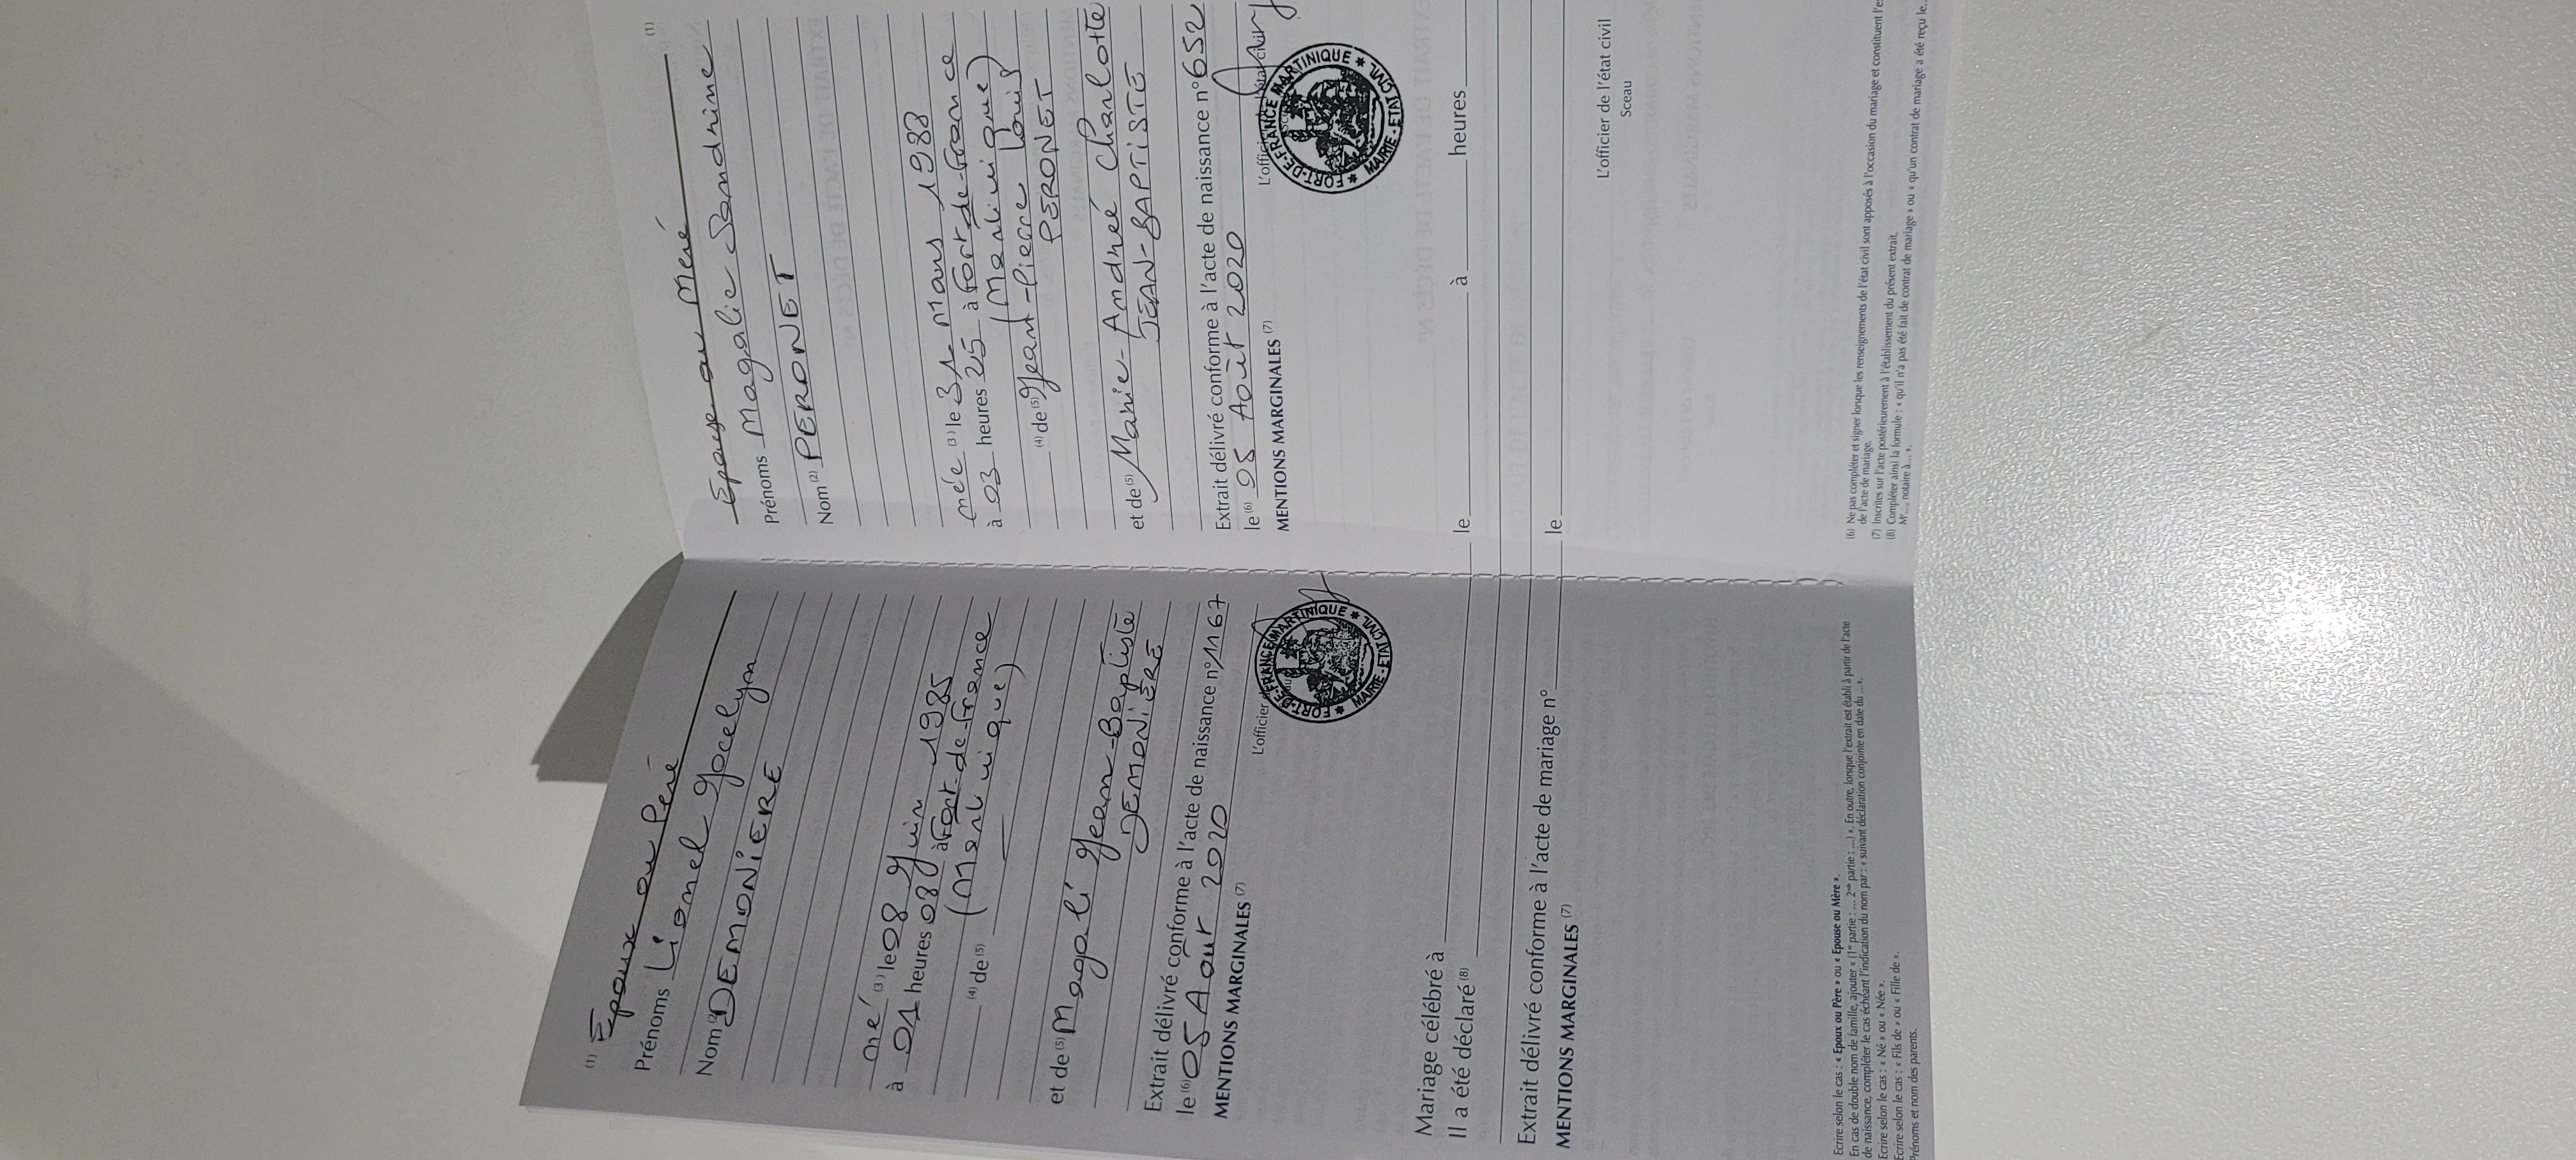 (1) Epoux ou Père
Prénoms Lionel Jocelyn
Nom (2) DEMONIÈRE
né (3) le 08 Juin 1985
à 01 heures 08 à Fort-de-France
(Martinique)
(4) de (5)
et de (5) Magali Jean-Baptiste
DEMONIÈRE
Extrait délivré conforme à l'acte de naissance n° 1167
le (6) 05 Août 2020
L'officier
MENTIONS MARGINALES (7)
FORT-DE-FRANCE MARTINIQUE * MAIRIE - ETAT CIVIL *
Mariage célébré à
Il a été déclaré (8)
Extrait délivré conforme à l'acte de mariage n°
MENTIONS MARGINALES (7)
Ecrire selon le cas : « Epoux ou Père » ou « Epouse ou Mère ».
En cas de double nom de famille, ajouter « (1re partie : .... 2nde partie : ...) ». En outre, lorsque l'extrait est établi à partir de l'acte
de naissance, compléter le cas échéant l'indication du nom par : « suivant déclaration conjointe en date du ... ».
Ecrire selon le cas : « Né » ou « Née ».
Ecrire selon le cas : « Fils de » ou « Fille de ».
Prénoms et nom des parents.
(1)
Epouse ou Mère
Prénoms Magalie Sandrine
Nom (2) PERONET
née (3) le 31 Mars 1988
à 03 heures 25 à Fort-de-France
(Martinique)
(4) de (5) Jean-Pierre Louis
PERONET
et de (5) Marie-Andrée Charlotte
JEAN-BAPTISTE
Extrait délivré conforme à l'acte de naissance n° 652
le (6) 05 Août 2020
L'officier de l'état civil
MENTIONS MARGINALES (7)
FORT-DE-FRANCE MARTINIQUE * MAIRIE - ETAT CIVIL *
le à heures
le
L'officier de l'état civil
Sceau
(6) Ne pas compléter et signer lorsque les renseignements de l'état civil sont apposés à l'occasion du mariage et constituent l'e
de l'acte de mariage.
(7) Inscrites sur l'acte postérieurement à l'établissement du présent extrait.
(8) Compléter ainsi la formule : « qu'il n'a pas été fait de contrat de mariage » ou « qu'un contrat de mariage a été reçu le..
Me..., notaire à... ».